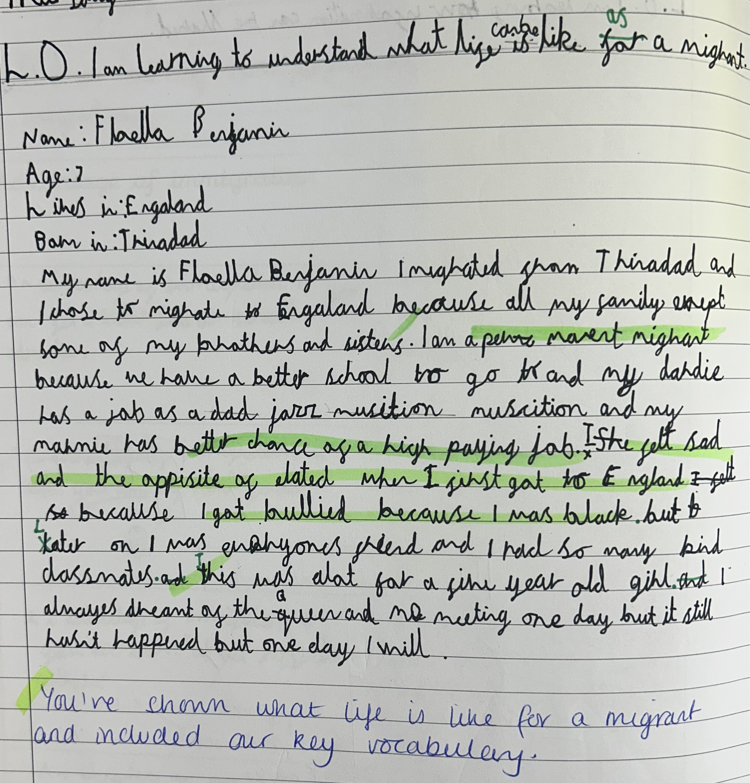 L.O. I am learning to understand what life can be like as a migrant.
Name: Floella Benjamin
Age: 7
Lives in: Engaland
Born in: Thrinadad
My name is Floella Benjamin I migrated from Thrinadad and
I chose to migrate to Engaland because all my family exept
some of my brothers and sisters. I am a perma manent migrant
because we have a better school to go to and my dardie
has a job as a dad jazz musition muscition and my
mamnie has better chance of a high paying job. I She felt sad
and the appisite of elated when I first got to England I felt
because I got bullied because I was black. but
Later on I was freind and I had so many kind
classmates. and This was alot for a five year old girl. and I
always dreamt of the queen and me meeting one day but it still
hasn't happened but one day I will.
You've shown what life is like for a migrant
and included our key vocabulary.